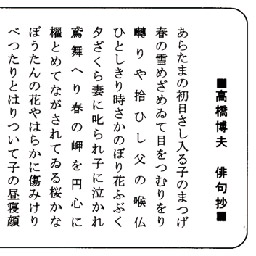 ■高橋博夫　俳句抄■
あらたまの初日さし入る子のまつげ
春の雪めざめゐて目をつむりをり
囀りや拾ひし父の喉仏
ひとしきり時さかのぼり花ふぶく
夕ざくら妻に叱られ子に泣かれ
鳶舞へり春の岬を円心に
櫂とめてながされてゐる桜かな
ぼうたんの花やはらかに傷みけり
べつたりとはりついて子の昼寝顔